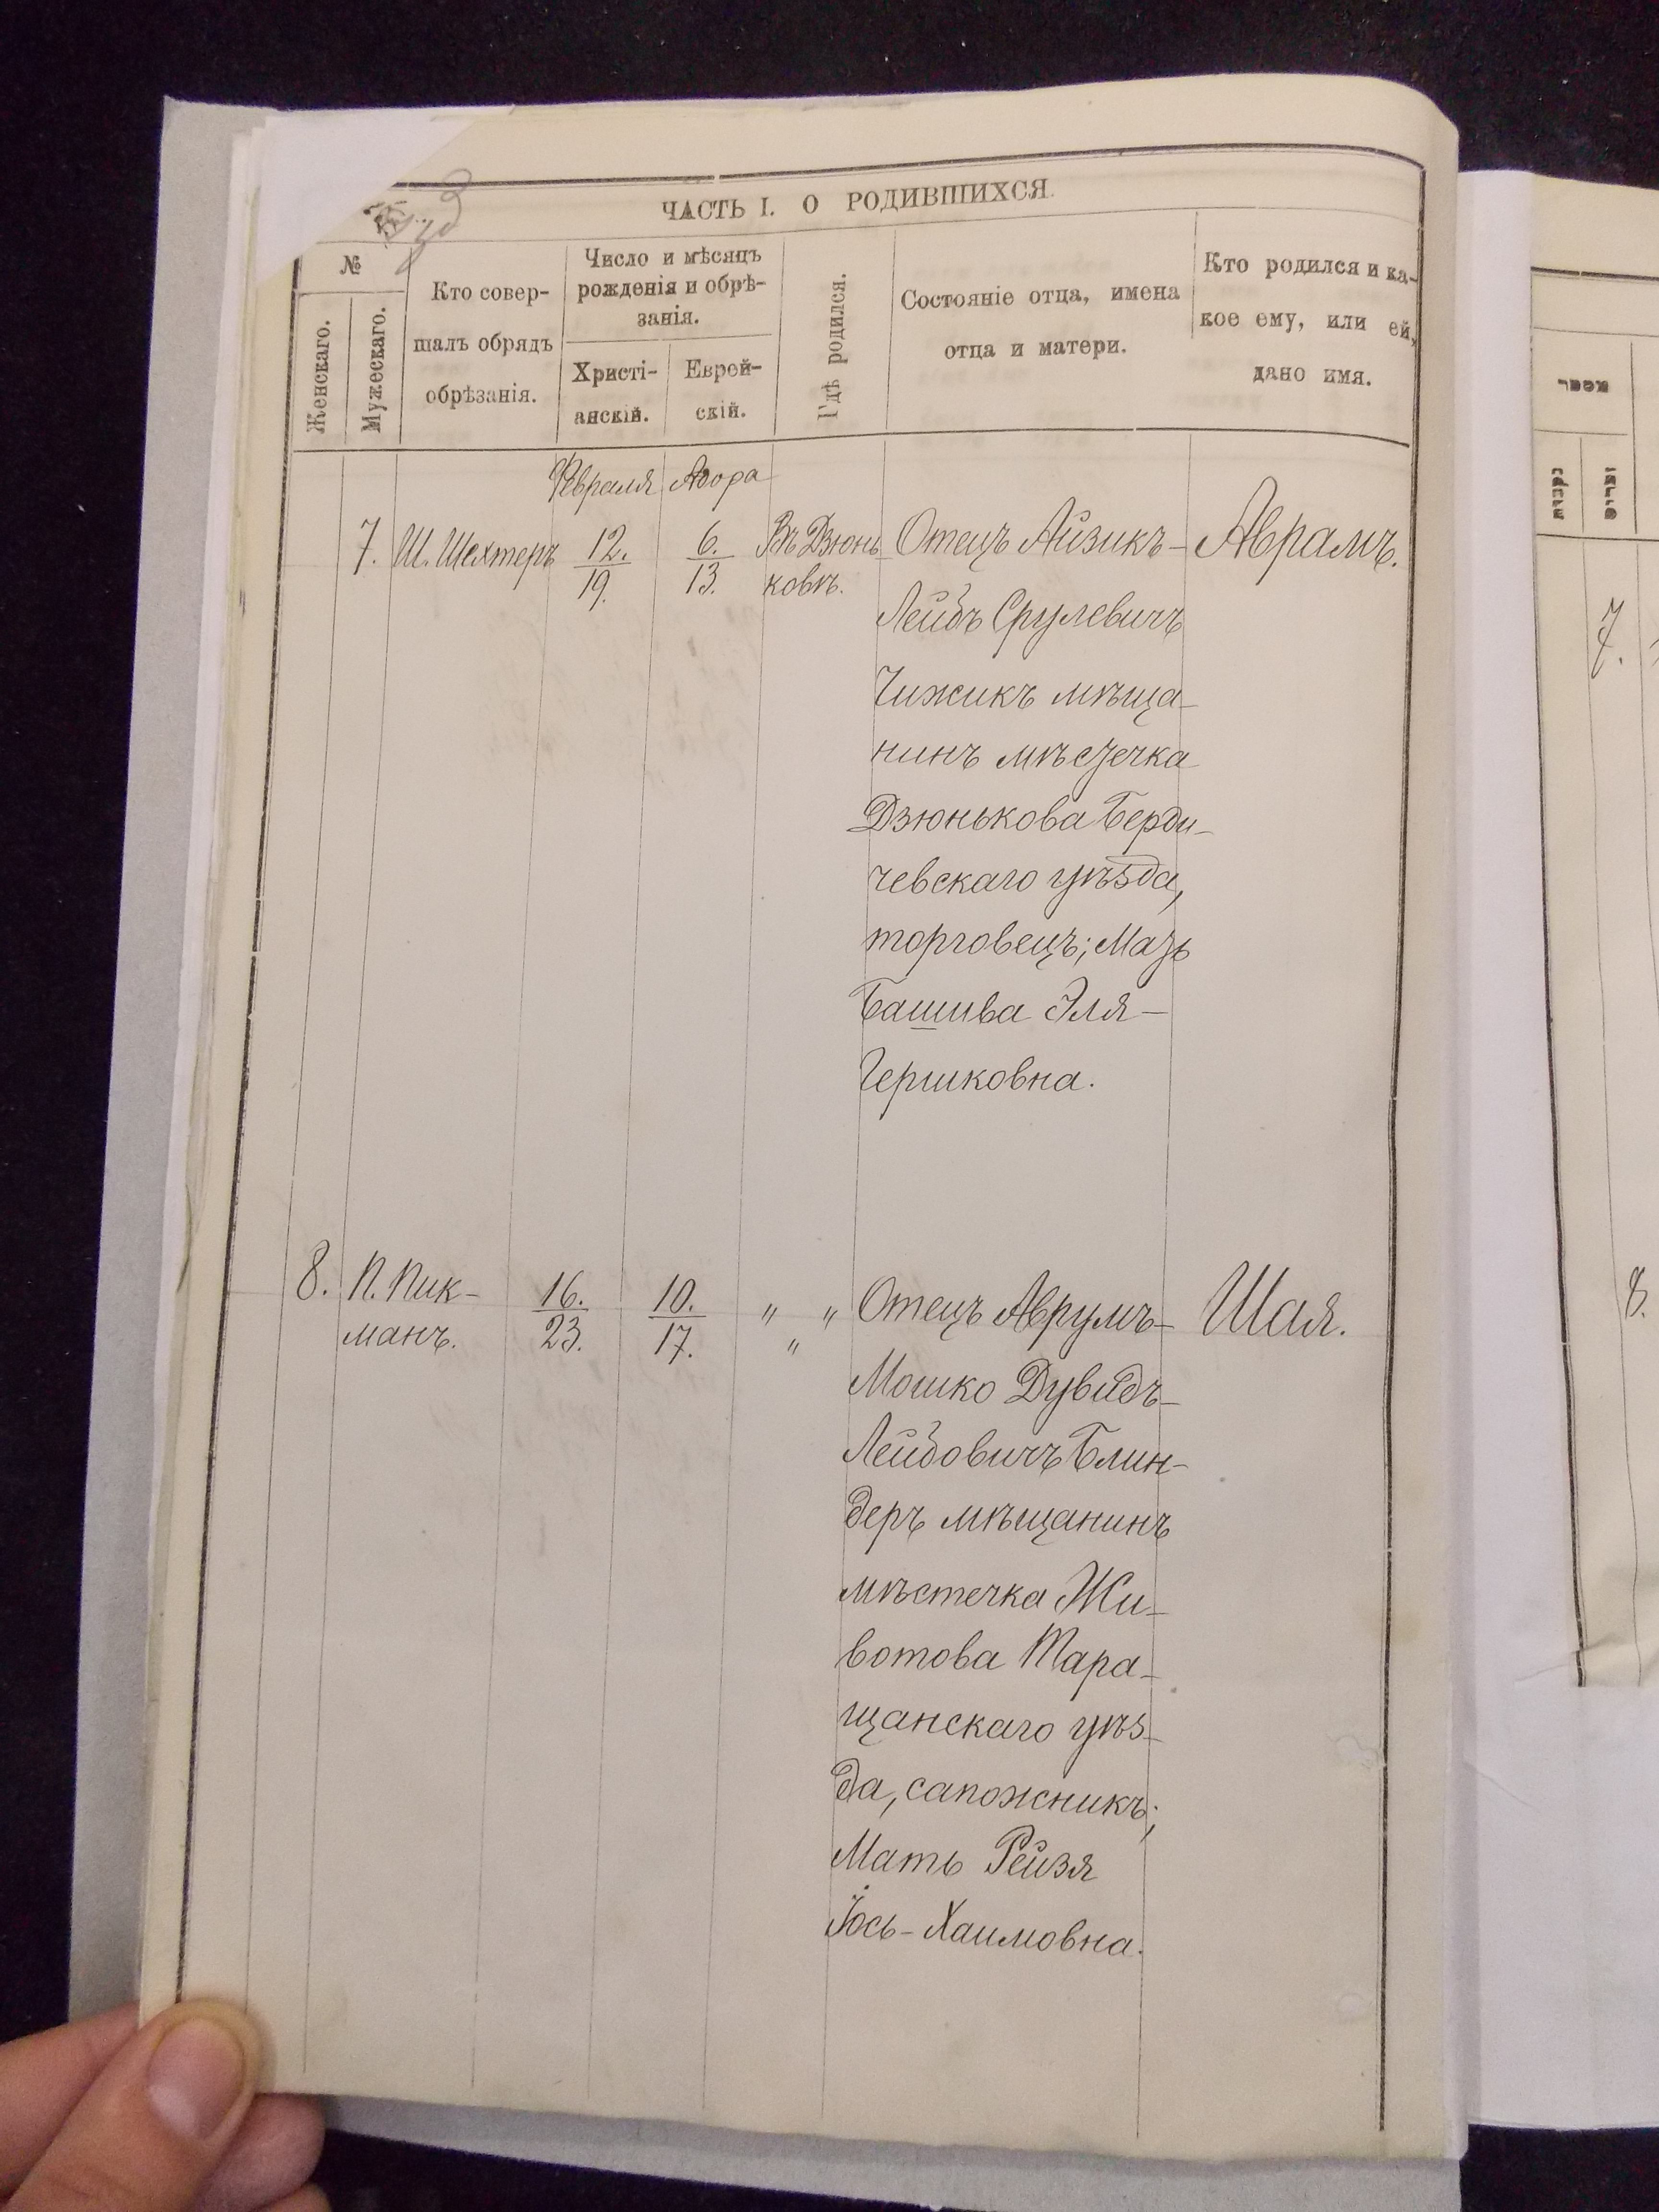 ЧАСТЬ I. О РОДИВШИХСЯ.
№
Женскаго.
Мужескаго.
Кто совер-
шалъ обрядъ
обрѣзанія.
Число и мѣсяцъ
рожденія и обрѣ-
занія.
Христі-
анскій.
Еврей-
скій.
Гдѣ родился.
Состояніе отца, имена
отца и матери.
Кто родился и ка-
кое ему, или ей,
дано имя.
Февраля Адора
7. Ш. Шехтеръ 12. 6. Въ Дзюнь Отецъ Айзикъ- Аврамъ.
19. 13. ковѣ.
Лейбъ Срулевичъ
Чижикъ мѣща-
нинъ мѣстечка
Дзюнькова Берди-
чевскаго уѣзда,
торговецъ; Мать
Башива Эля-
Гершковна.
8. П. Пик- 16. 10. " " Отецъ Аврумъ- Шая.
манъ. 23. 17. "
Мошко Дувидъ-
Лейбовичъ Блин-
деръ мѣщанинъ
мѣстечка Жи-
вотова Тара-
щанскаго уѣз-
да, сапожникъ;
Мать Рейзя
Іось-Хаимовна.
7.
8.